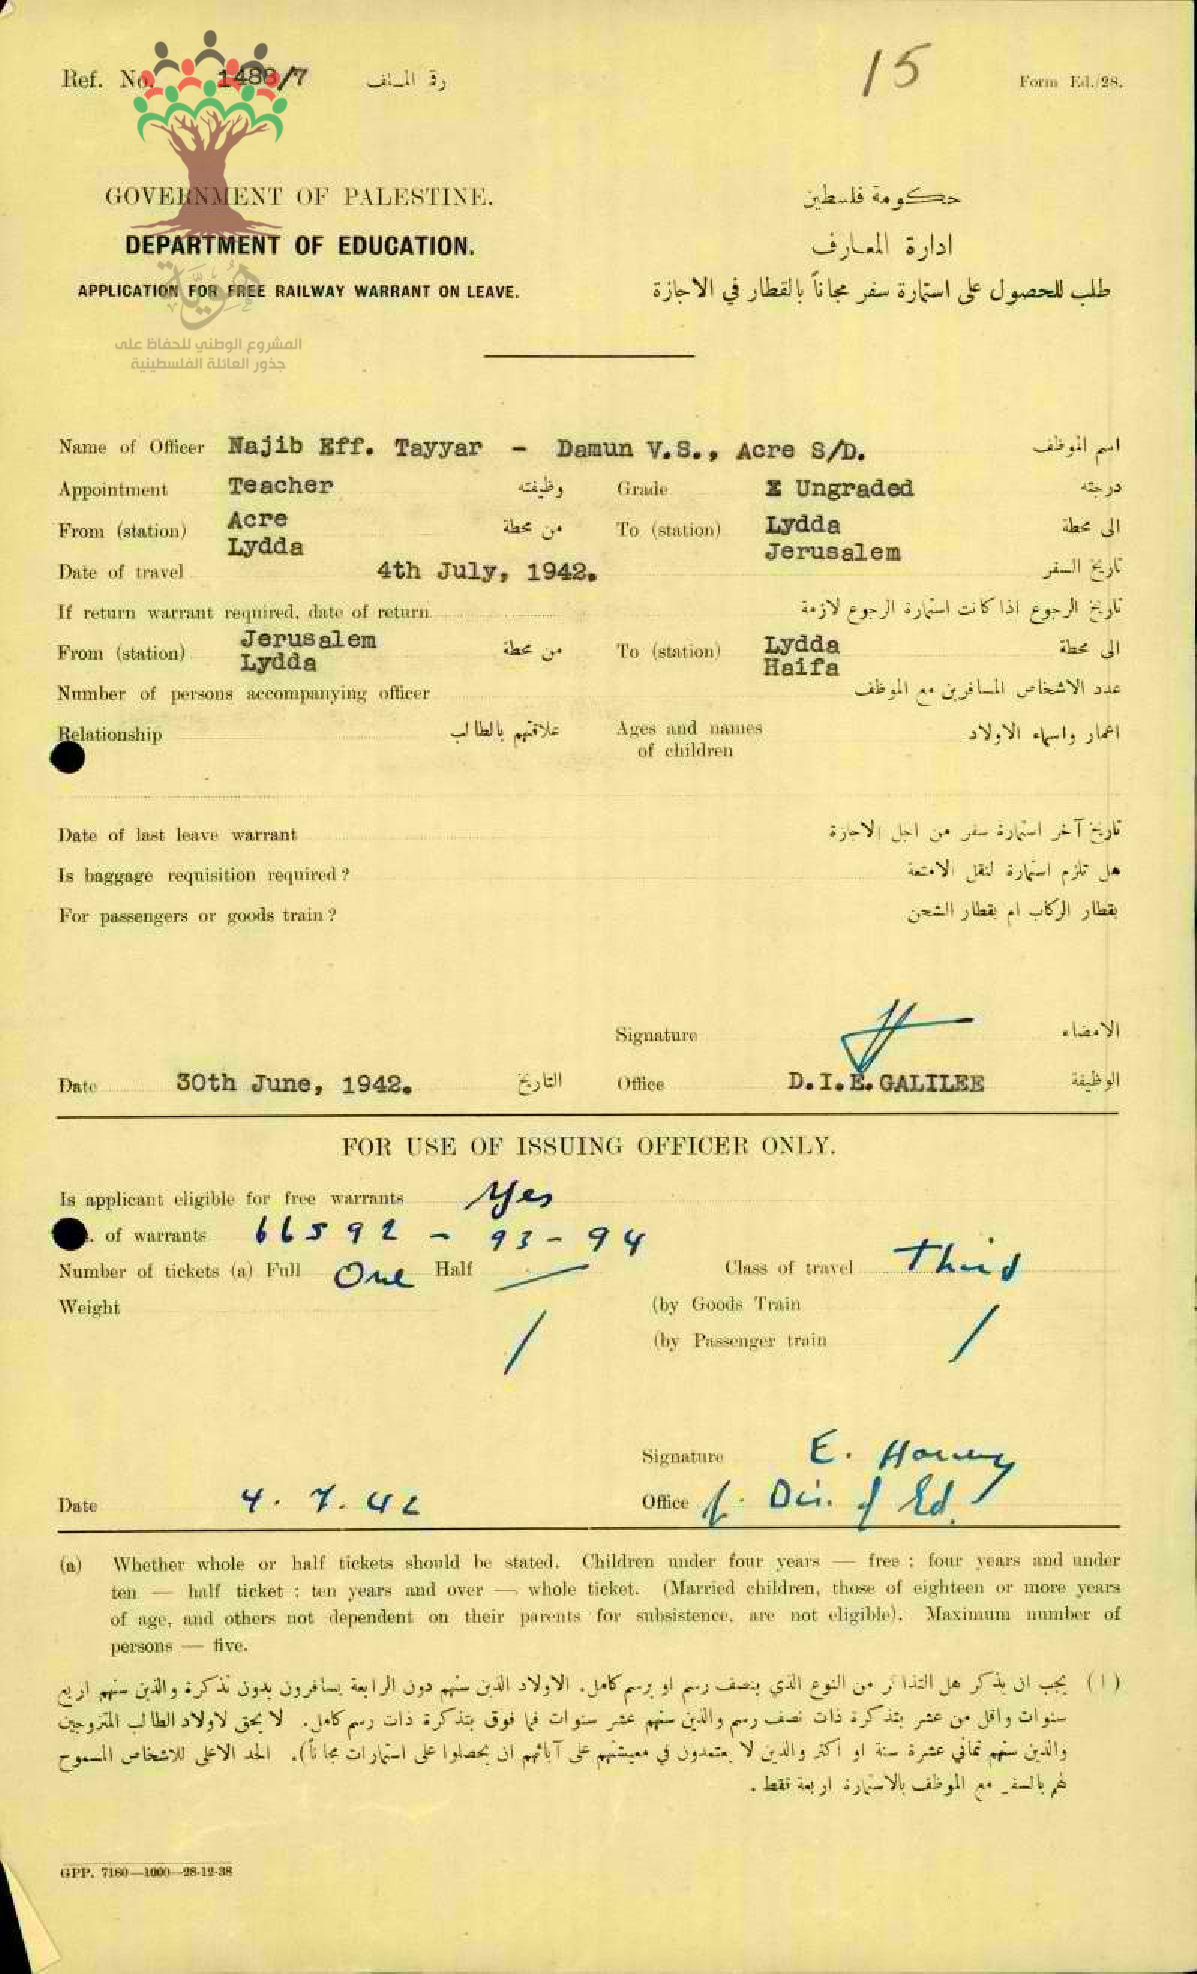 Ref. No. 1488/7 رقة الملف 15 Form Ed./28.
GOVERNMENT OF PALESTINE. حكومة فلسطين
DEPARTMENT OF EDUCATION. ادارة المعارف
APPLICATION FOR FREE RAILWAY WARRANT ON LEAVE. طلب للحصول على استمارة سفر مجاناً بالقطار في الاجازة
هُوِيَّة
المشروع الوطني للحفاظ على
جذور العائلة الفلسطينية
Name of Officer Najib Eff. Tayyar - Damun V.S., Acre S/D. اسم الموظف
Appointment Teacher وظيفته Grade Ungraded درجته
From (station) Acre من محطة To (station) Lydda الى محطة
Lydda Jerusalem
Date of travel 4th July, 1942. تاريخ السفر
If return warrant required, date of return تاريخ الرجوع اذا كانت استمارة الرجوع لازمة
From (station) Jerusalem من محطة To (station) Lydda الى محطة
Lydda Haifa
Number of persons accompanying officer عدد الاشخاص المسافرين مع الموظف
Relationship علاقتهم بالطالب Ages and names اعمار واسماء الاولاد
of children
Date of last leave warrant تاريخ آخر استمارة سفر من اجل الاجازة
Is baggage requisition required? هل تلزم استمارة لنقل الامتعة
For passengers or goods train? بقطار الركاب ام بقطار الشحن
Signature الامضاء
Date 30th June, 1942. التاريخ Office D.I.E. GALILEE الوظيفة
FOR USE OF ISSUING OFFICER ONLY.
Is applicant eligible for free warrants Yes
. of warrants 66592 - 93 - 94
Number of tickets (a) Full One Half Class of travel Third
Weight (by Goods Train
(by Passenger train
Signature E.
Date 4.7.42 Office f. Dir. of Ed.
(a) Whether whole or half tickets should be stated. Children under four years — free ; four years and under
ten — half ticket ; ten years and over — whole ticket. (Married children, those of eighteen or more years
of age, and others not dependent on their parents for subsistence, are not eligible). Maximum number of
persons — five.
(ا) يجب ان يذكر هل التذاكر من النوع الذي بنصف رسم او برسم كامل. الاولاد الذين سنهم دون الرابعة يسافرون بدون تذكرة والذين سنهم اربع
سنوات واقل من عشر بتذكرة ذات نصف رسم والذين سنهم عشر سنوات فما فوق بتذكرة ذات رسم كامل. لا يحق لاولاد الطالب المتزوجين
والذين سنهم ثماني عشرة سنة او اكثر والذين لا يعتمدون في معيشتهم على آبائهم ان يحصلوا على استمارات مجاناً). الحد الاعلى للاشخاص المسموح
لهم بالسفر مع الموظف بالاستمارة اربعة فقط.
GPP. 7160—1000—28-12-38